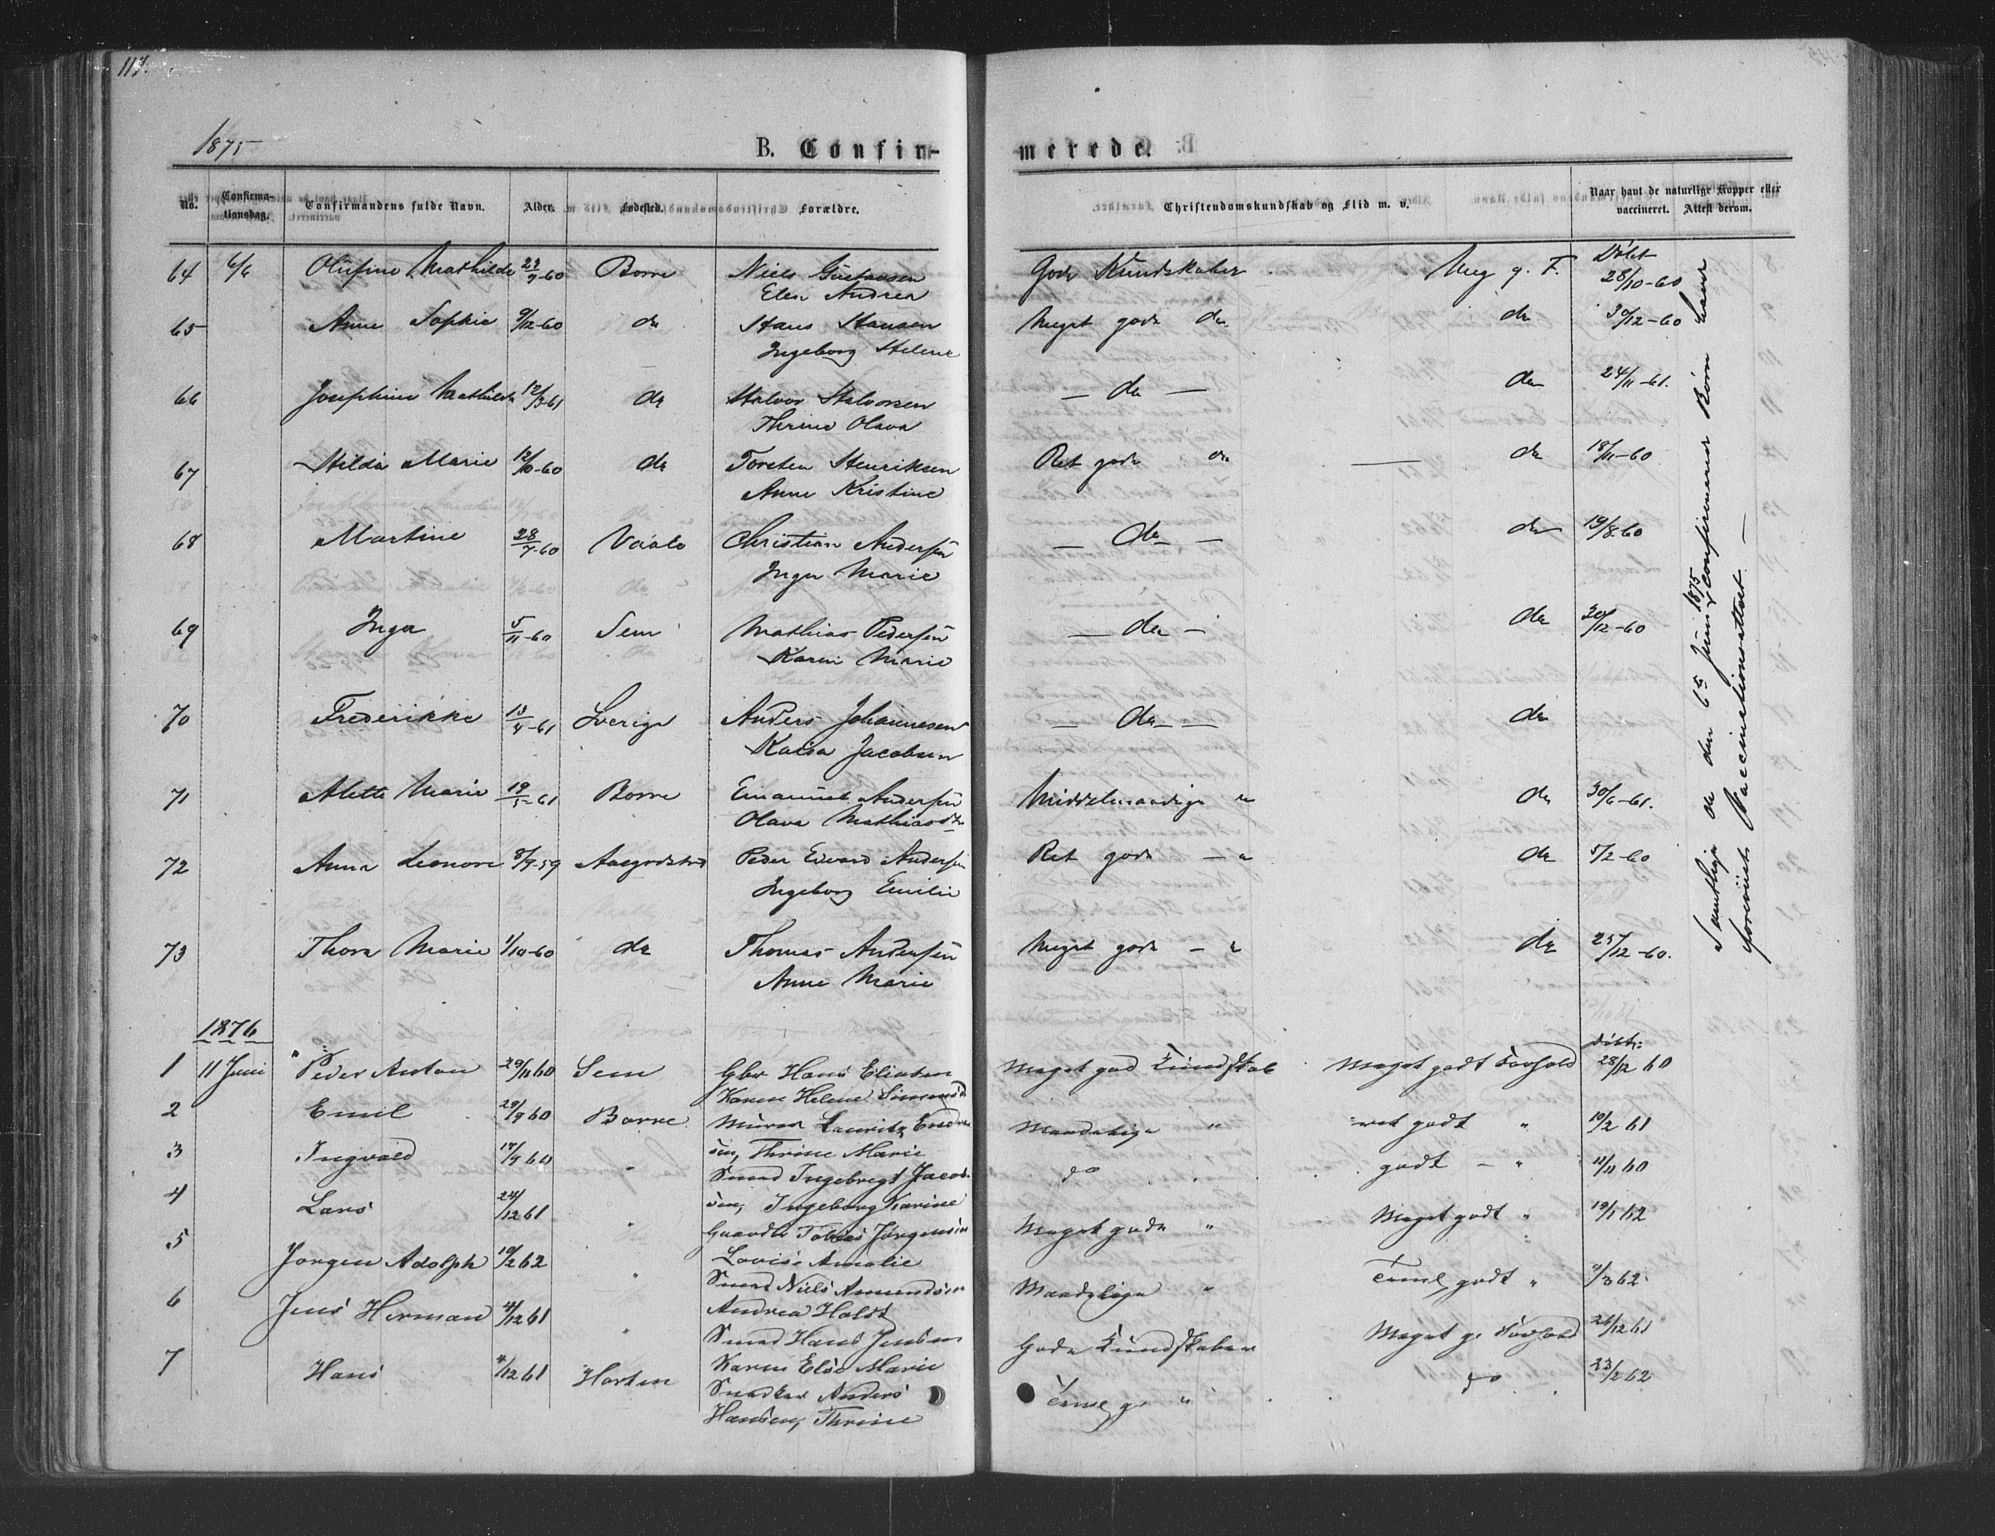 117.
1875
B. Confir-
merede.
No. Confirmationsdag. Confirmandens fulde Navn. Alder. Fødested. Forældre. Christendomskundskab og Flid m. v. Naar havt de naturlige Kopper eller vaccineret. Attest derom.
64 6/6 Olufine Mathilde 22/9-60 Borre Niels Gustavsen Gode Kundskaber Meg. g. F. Døbt 28/10-60
Elen Andrea
65 Anne Sophie 9/12-60 do Hans Hansen Meget gode do do 30/12-60
Ingeborg Helene
66 Josephine Mathilde 12/3-61 do Halvor Halvorsen — do — do 24/11-61.
Thrine Olava
67 Hilda Marie 12/10-60 do Torsten Henriksen Ret gode do — do 18/11-60
Anne Kristine
68 Martine 28/7-60 Vaale Christian Andersen — do — do 19/8-60
Inger Marie
69 Inga 5/11-60 Sem Mathias Pedersen — do — do 30/12-60
Karen Marie
70 Frederikke 13/4-61 Sverige Anders Johannesen — do — do
Kaisa Jacobsen
71 Alette Marie 19/5-61 Borre Emanuel Andersen Middelmaadige " do 30/6-61.
Olava Mathiasdtr
72 Anna Leonore 8/9-59 Aasgardstrand Peder Edvard Andersen Ret gode — " do 5/2-60
Ingeborg Emilie
73 Thora Marie 1/10-60 do Thomas Andersen Meget gode — " do 25/12-60.
Anne Marie
Samtlige de den 6te Juni 1875 confirmerede Børn have
foreviist Vaccinationsattest. —
1876
1 11 Juni Peder Anton 29/11 60 Sem Gbr Hans Eliasen Meget god Kundskab Meget godt Forhold Døbt: 28/12 60
Karen Helene
2 Emil 29/9 60 Borre Murer Lauritz Maadelige " ret godt " 10/2 61
sen, Thrine Marie
3 Ingvald 17/9 60 " Smed Ingebrigt Jacob- do godt — " 11/11 60
sen, Ingeborg Karine
4 Lars 24/12 61 " Tobias Jørgensen Meget gode " Meget godt " 19/1 62
Lovise Amalie
5 Jørgen Adolph 10/2 62 " Smed Niels Amundsen Maadelige " godt " 9/3 62
Andrea Holst
6 Jens Herman 4/12 61 " Smed Hans Jensen Gode Kundskaber Meget g. Forhold 26/12 61
Karen Else Marie
7 Hans 4/12 61 Horten Snedker Anders g. " do 23/2 62
Hansen, Thrine